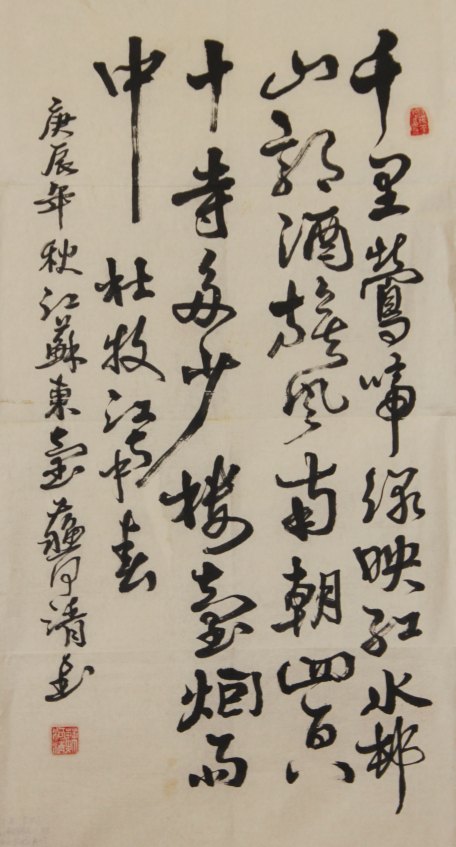 千里鶯啼綠映紅水村
山郭酒旗風南朝四百八
十寺多少樓臺烟雨
中 杜牧江南春
庚辰年秋江蘇東臺